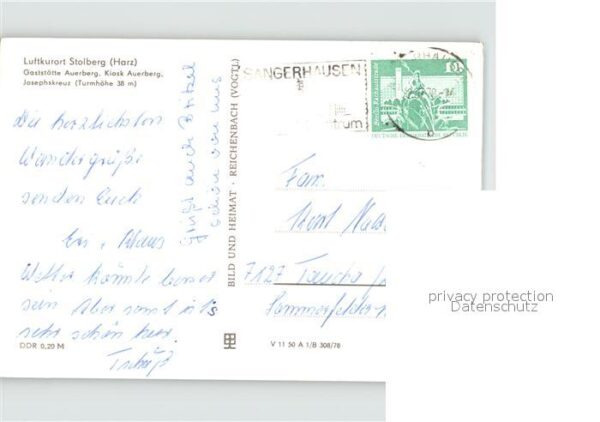 Luftkurort Stolberg (Harz)
Gaststätte Auerberg, Kiosk Auerberg,
Josephskreuz (Turmhöhe 38 m)
Die herzlichsten
Wandergrüße
senden Euch
Eva + Klaus
Wetter könnte besser
sein Aber sonst ist's
sehr schön hier.
Tschüß
Grüßt auch
schön von uns
DDR 0,20 M
BILD UND HEIMAT · REICHENBACH (VOGTL)
V 11 50 A 1/B 308/78
SANGERHAUSEN
trum
10
DEUTSCHE DEMOKRATISCHE REPUBLIK
Fam.
Horst
7127 Taucha
Sommerfelder
privacy protection
Datenschutz